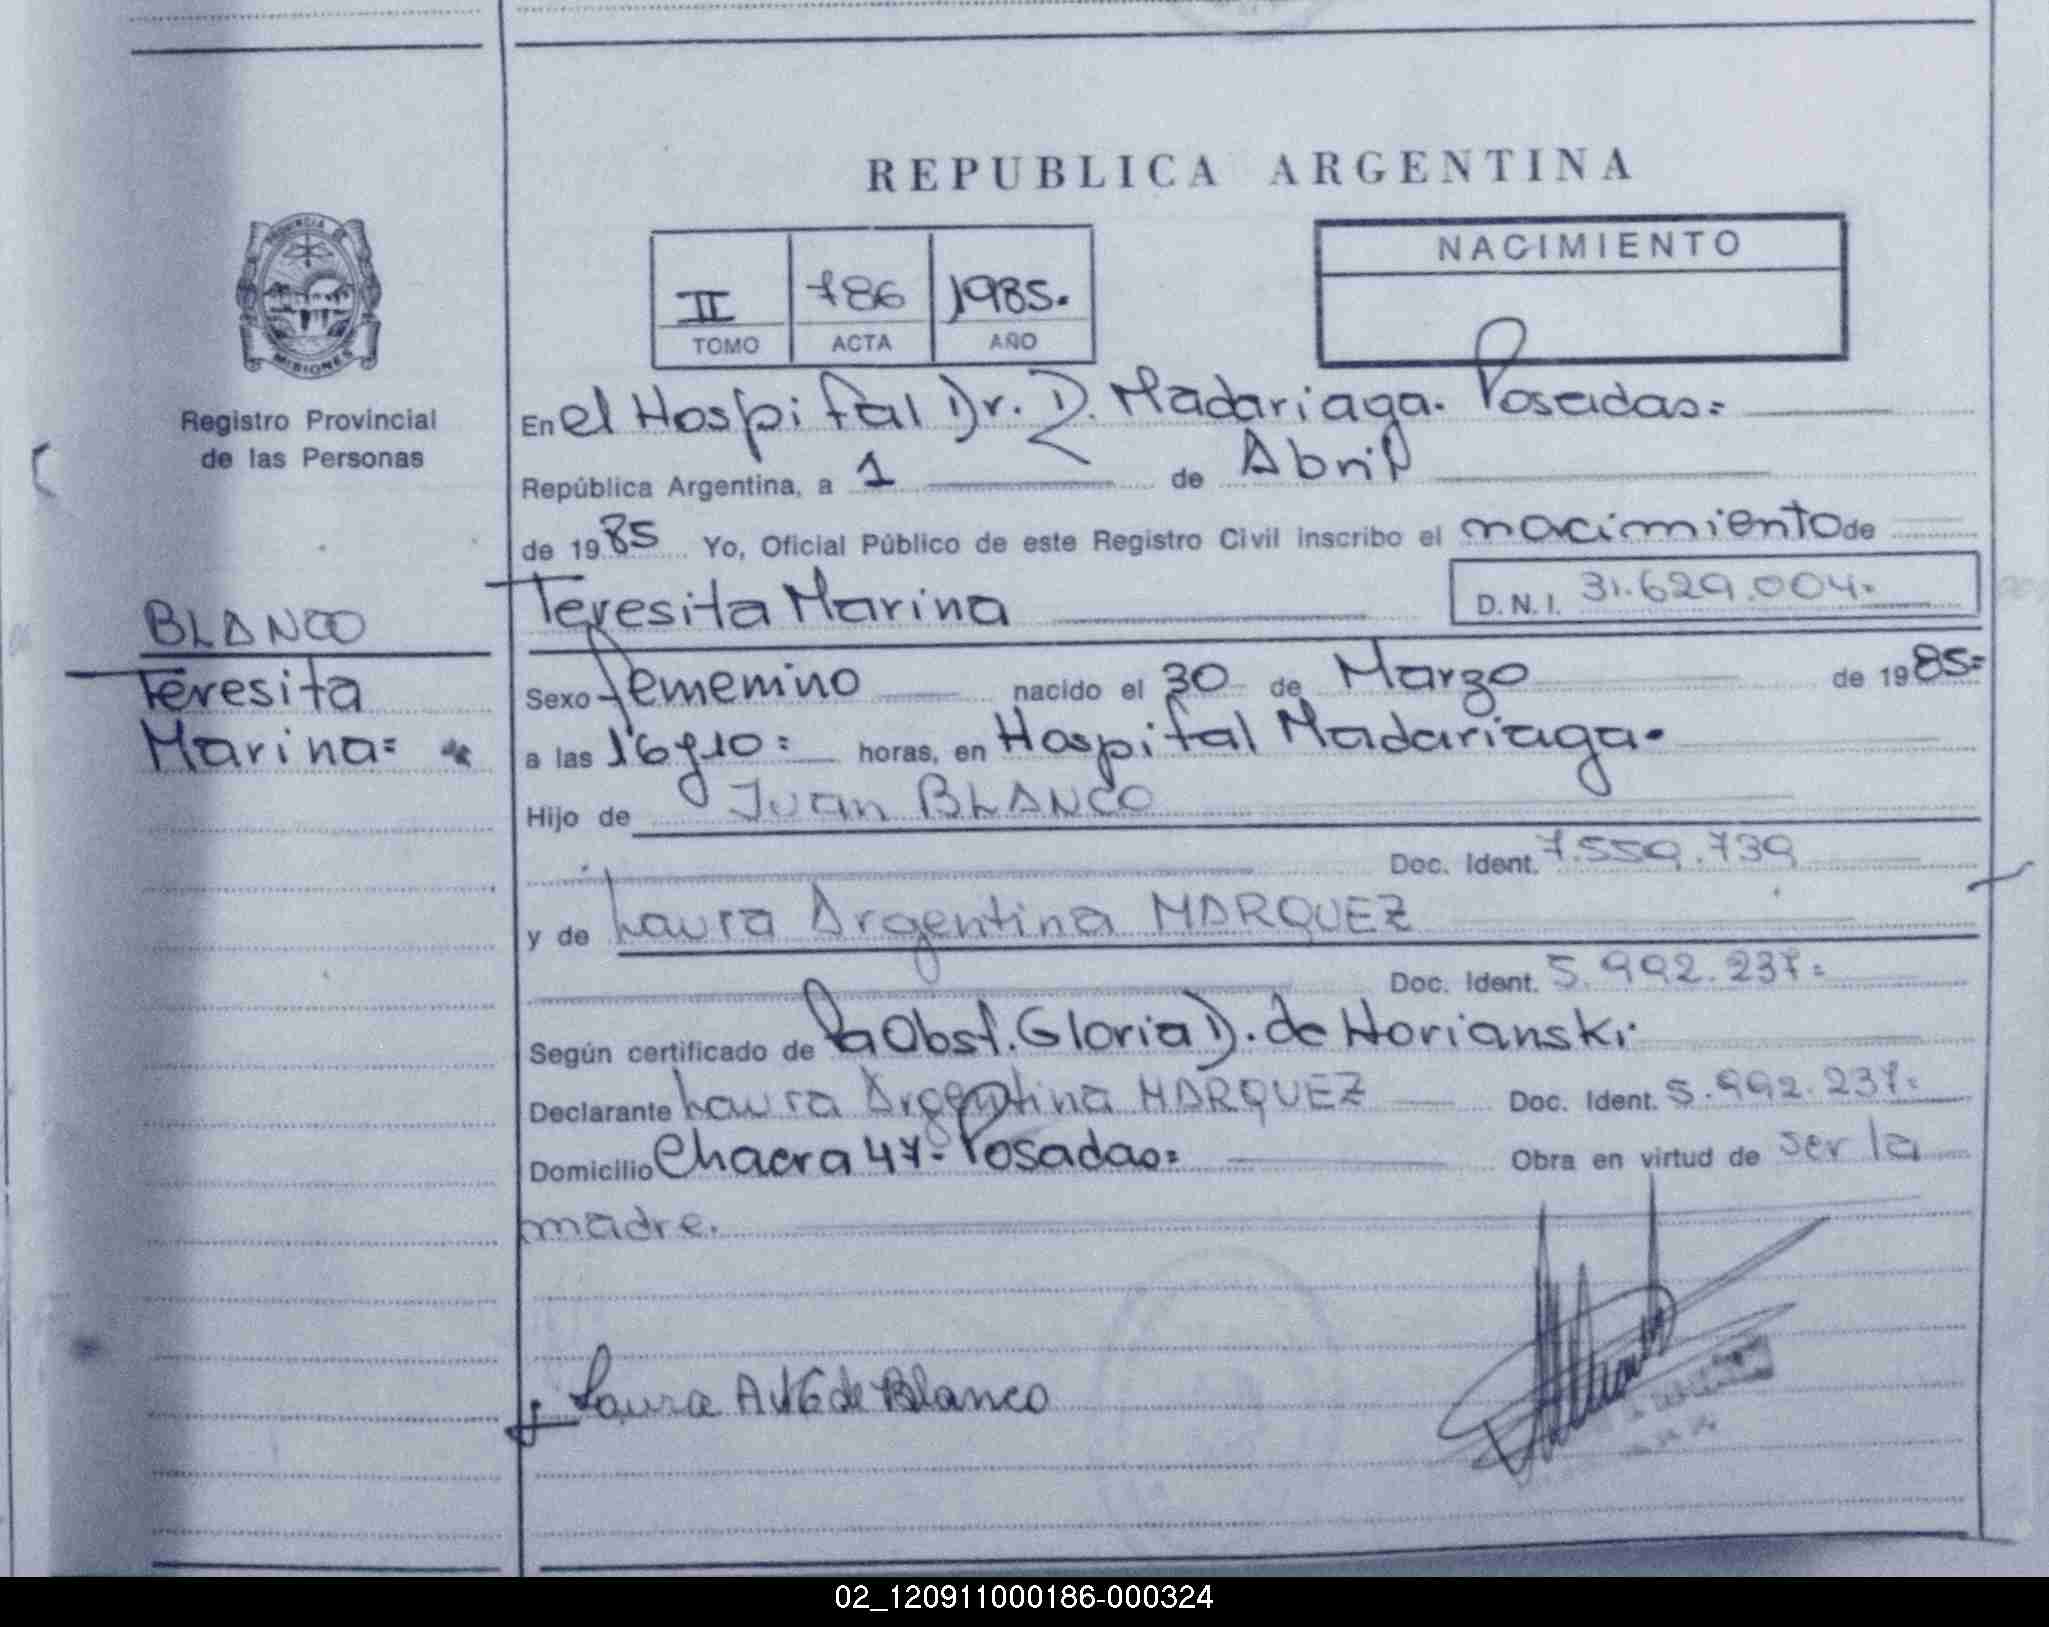 REPUBLICA ARGENTINA
PROVINCIA DE
MISIONES
Registro Provincial
de las Personas
II 786 1985.
TOMO ACTA AÑO
NACIMIENTO
En el Hospital Dr. R. Madariaga. Posadas=
República Argentina, a 1 de Abril
de 1985 Yo, Oficial Público de este Registro Civil inscribo el nacimiento de
Teresita Marina D.N.I. 31.629.004.
BLANCO
Teresita
Marina=
Sexo femenino nacido el 30 de Marzo de 1985=
a las 16y10= horas, en Hospital Madariaga.
Hijo de Juan BLANCO
Doc. Ident. 7.559.739
y de Laura Argentina MARQUEZ
Doc. Ident. 5.992.237=
Según certificado de la Obst. Gloria D. de Horianski.
Declarante Laura Argentina MARQUEZ Doc. Ident. 5.992.237=
Domicilio Chacra 47- Posadas= Obra en virtud de ser la
madre.
Laura de Blanco
02_120911000186-000324